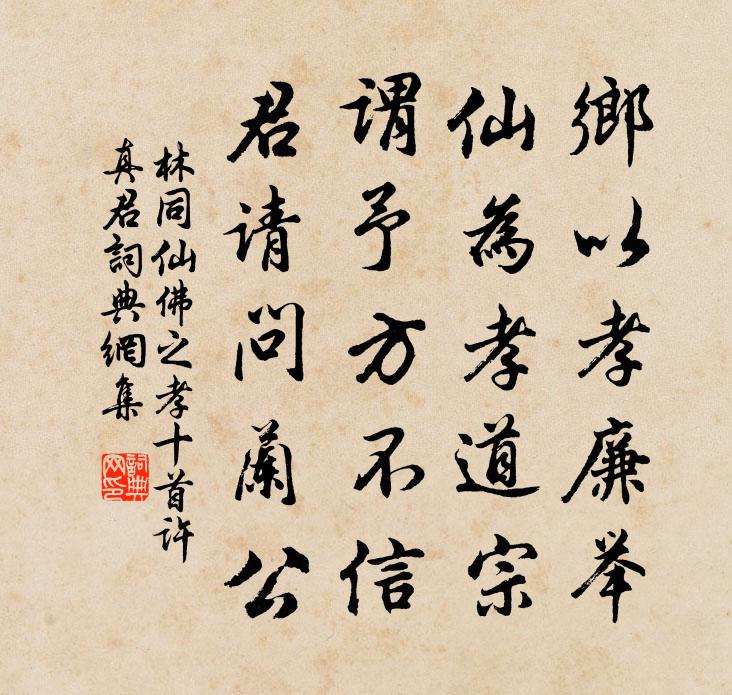 鄉以孝廉举
仙為孝道宗
謂予方不信
君请问蘭公
林同仙佛之孝十首许
真君詞典網集
詞典
网印